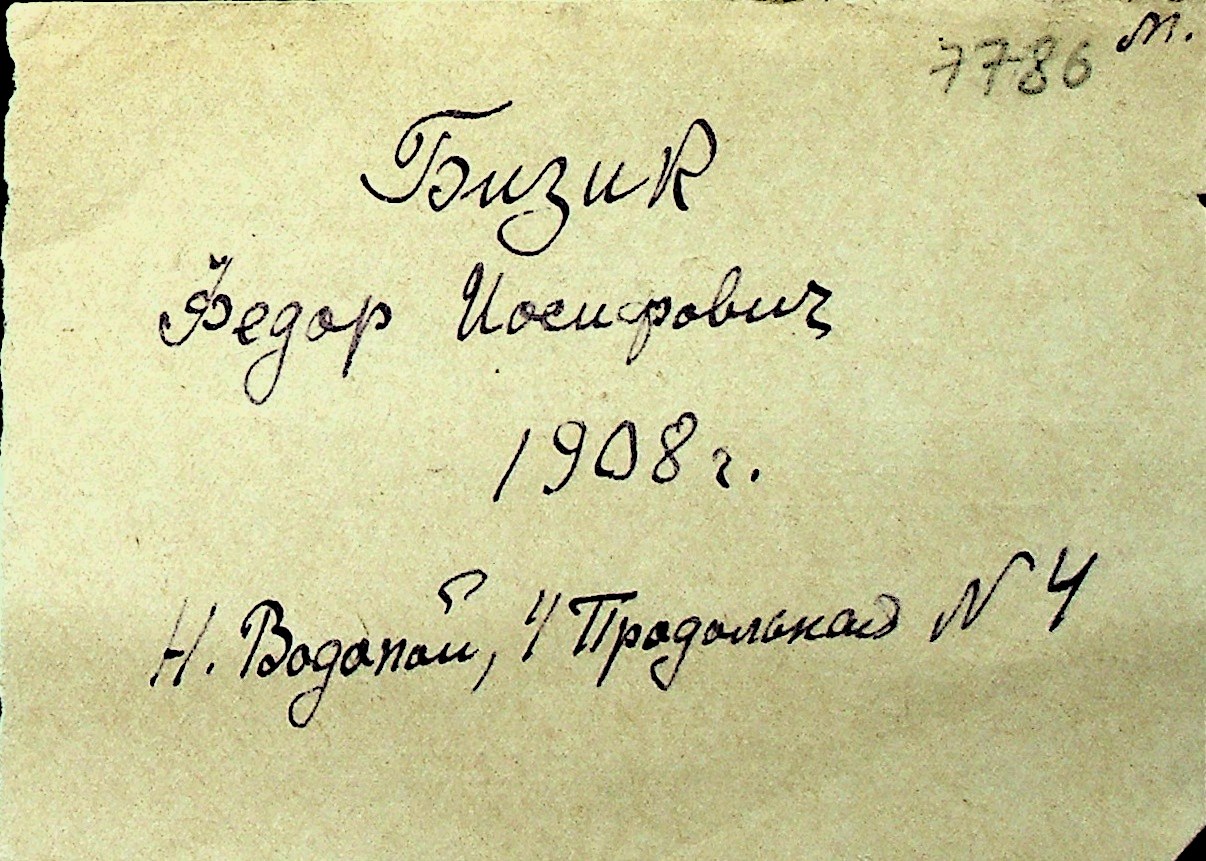 7786 м.
Бизик
Федор Иосифович
1908 г.
Н. Водопой, 4 Продольная N 4